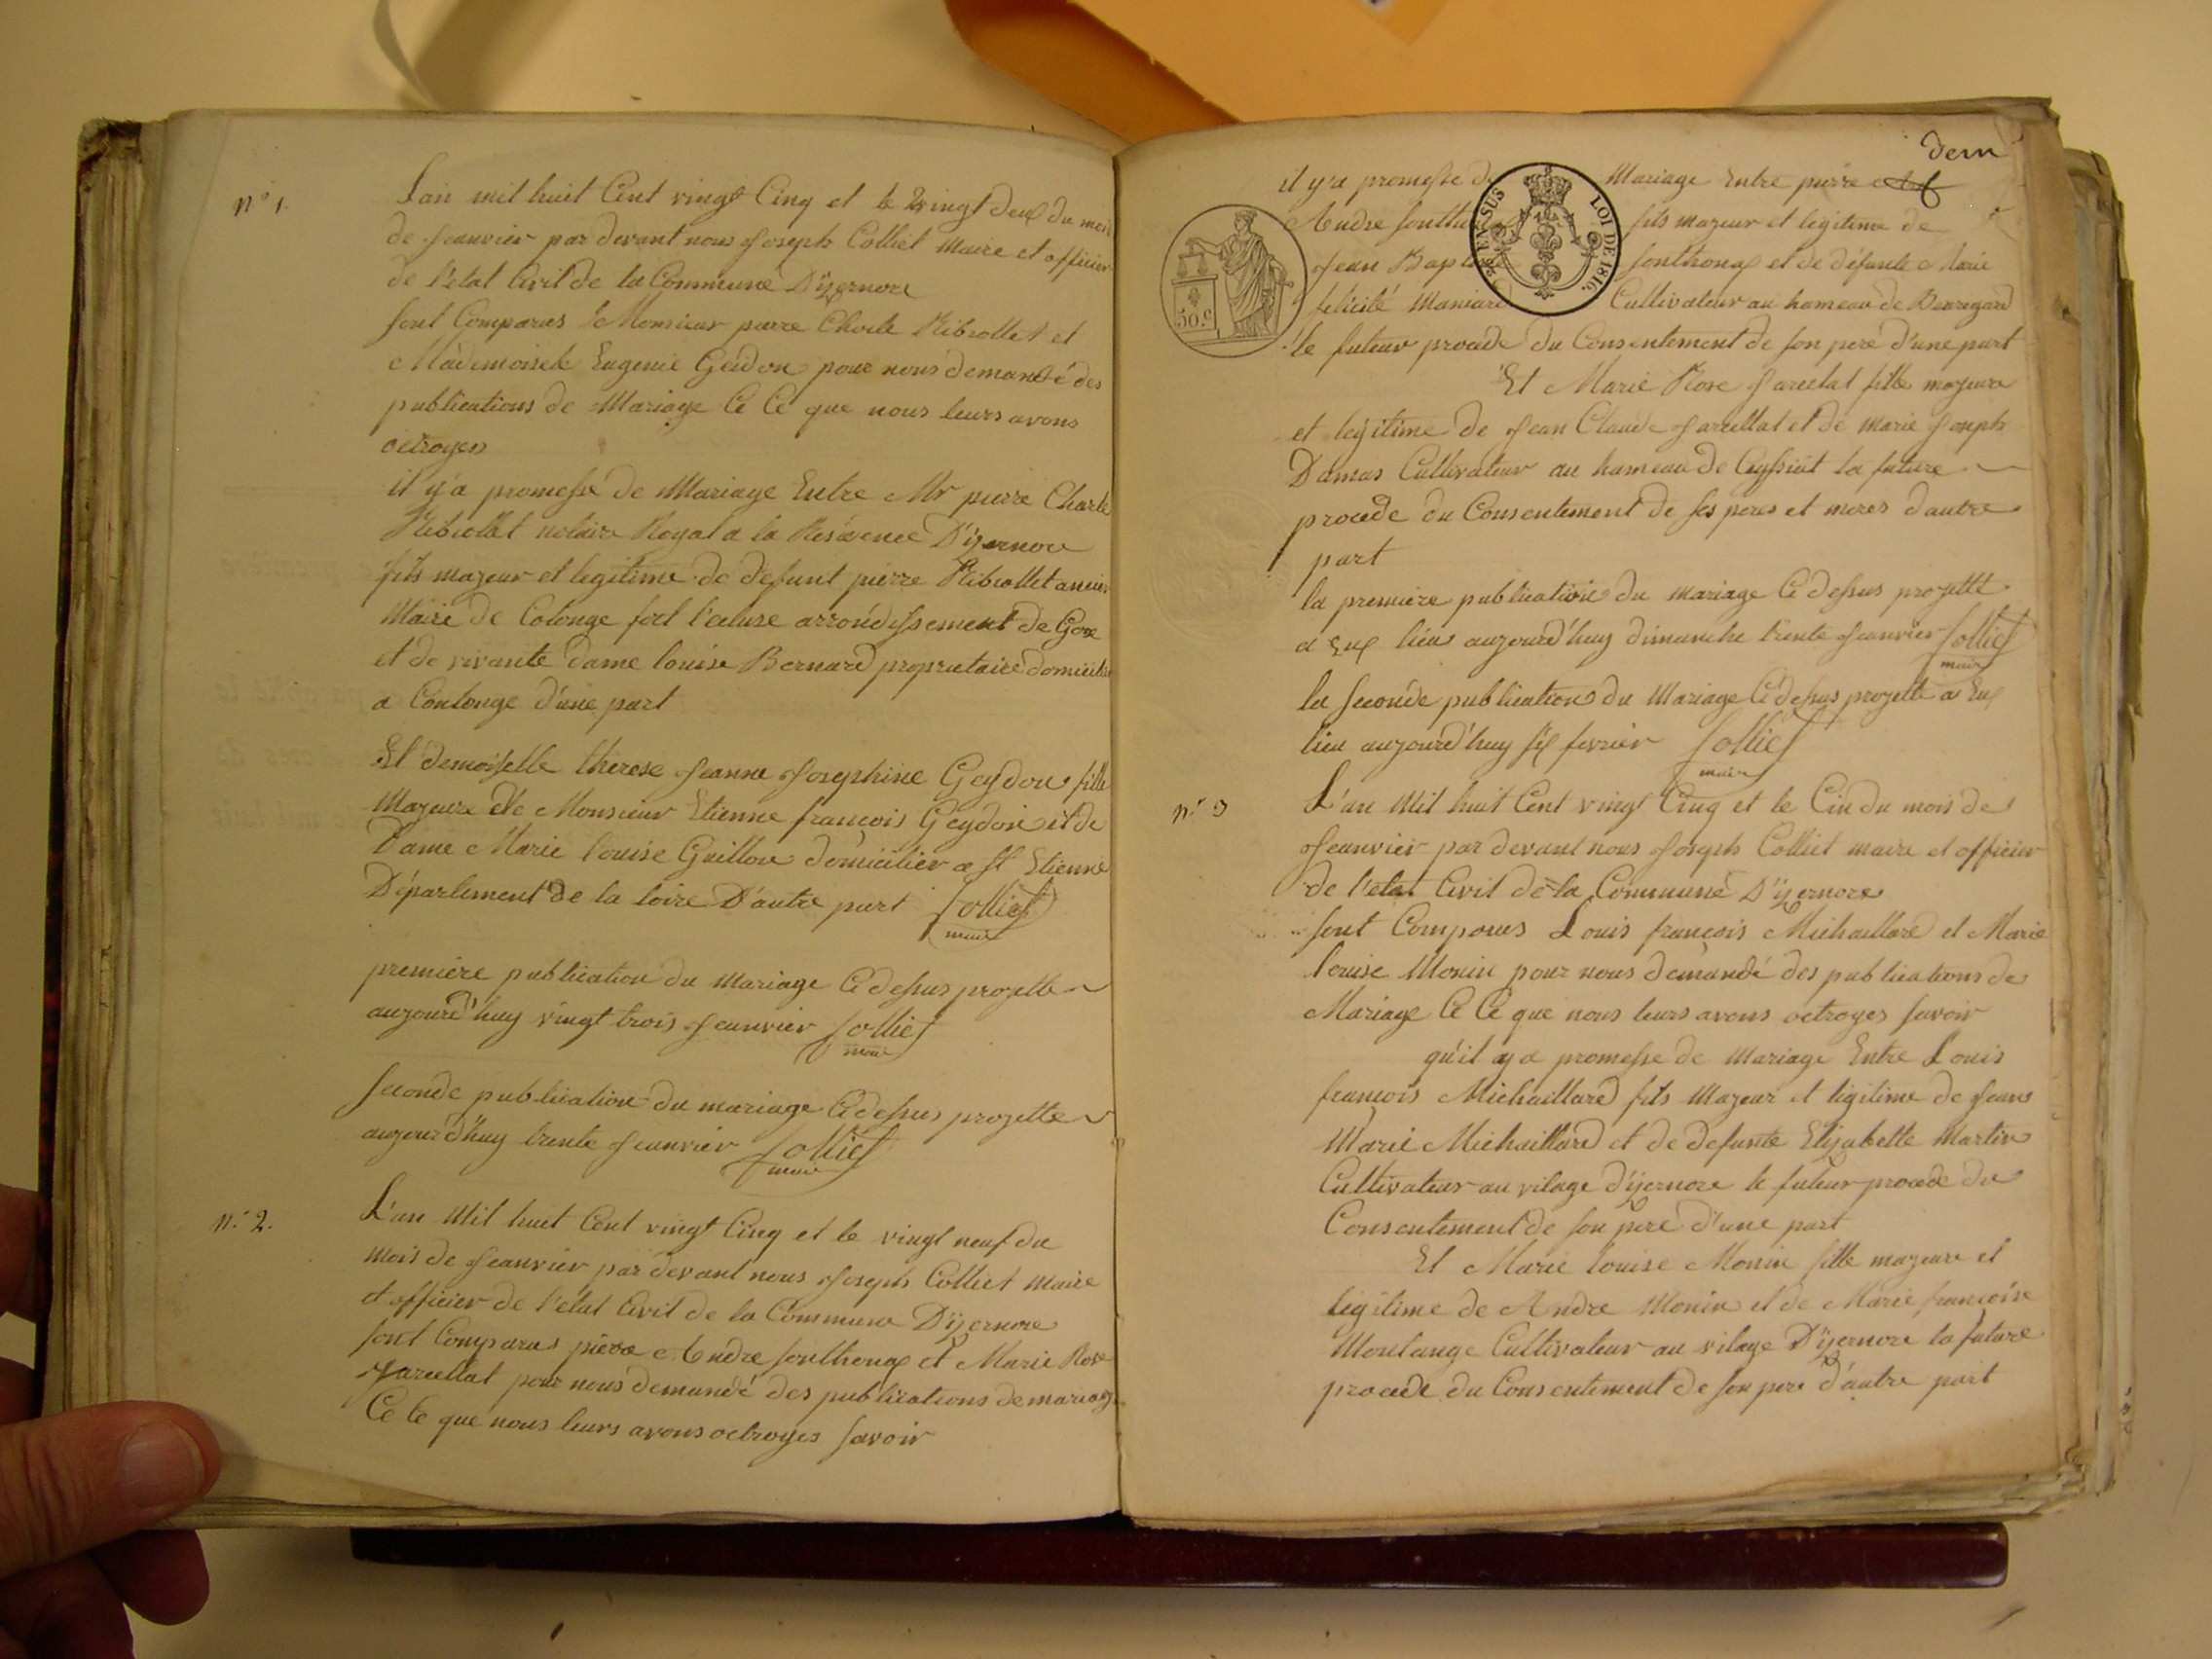 n° 1.
L'an mil huit Cent vingt Cinq et le vingt deux du mois
de Jeanvier par devant nous Joseph Colliet Maire et officier
de l'état Civil de la Commune D'yzernore
sont Comparus Monsieur pierre Charle Ribiollet et
Mademoiselle Eugenie Geidon pour nous demandé des
publications de Mariage Ce Ce que nous leurs avons
octroyes
il y'a promesse de Mariage Entre Mr pierre Charle
Ribiollet notaire Royal a la Residence D'yzernore
fils majeur et legitime de defunt pierre Ribiollet ancien
Maire de Colonge fort l'ecluse arrondissement de Gex
et de vivante dame louise Bernard proprietaire domicilie
a Coulonge d'une part
Et demoiselle thérese Jeanne Josephine Geydon fille
Majeure de Monsieur Etienne françois Geydon et de
Dame Marie louise Guillon domicilier a St Etienne
Département de la loire D'autre part Colliet
maire
première publication du mariage Cidessus projette
aujourd'huy vingt trois Jeanvier Colliet
maire
seconde publication du mariage Cidessus projette
aujourd'huy trente Jeanvier Colliet
maire
n° 2.
L'an Mil huit Cent vingt Cinq et le vingt neuf du
mois de Jeanvier par devant nous Joseph Colliet Maire
et officier de l'état Civil de la Commune D'yzernore
sont Comparus pierre Andre sonthonax et Marie Rose
Jarcellat pour nous demandé des publications de mariage
Ce Ce que nous leurs avons octroyes savoir
dern
il y'a promesse de Mariage Entre pierre
Andre sonthonax fils majeur et legitime de
Jean Baptiste sonthonax et de défunte Marie
felicité Maniard Cultivateur au hameau de Beauregard
le futeur procede du Consentement de son pere d'une part
50.c
26 EN SUS
LOI DE 1816.
Et Marie Rose Jarcellat fille majeure
et legitime de Jean Claude Jarcellat et de marie Joseph
Damas Cultivateur au hameau de Ceyssiat la future
procede du Consentement de ses peres et meres d'autre
part
la première publication du mariage Cidessus projette
a Eux lieu aujourd'huy dimanche trente Jeanvier Colliet
maire
la seconde publication du Mariage Cidessus projette a Eux
lieu aujourd'huy six fevrier Colliet
maire
n° 3
L'an Mil huit Cent vingt Cinq et le Cin du mois de
Jeanvier par devant nous Joseph Colliet maire et officier
de l'etat Civil de la Commune D'yzernore
sont Comparus Louis françois Michaillard et Marie
louise Monin pour nous demandé des publications de
Mariage Ce Ce que nous leurs avons octroyes savoir
qu'il y a promesse de Mariage Entre Louis
françois Michaillard fils Majeur et legitime de Jean
Marie Michaillard et de defunte Elizabette Martin
Cultivateur au vilage D'yzernore le futeur procede du
Consentement de son pere d'une part
Et Marie louise Monin fille majeure et
legitime de Andre Monin et de Marie françoise
Montange Cultivateur au vilage D'yzernore la future
procede du Consentement de son pere d'autre part